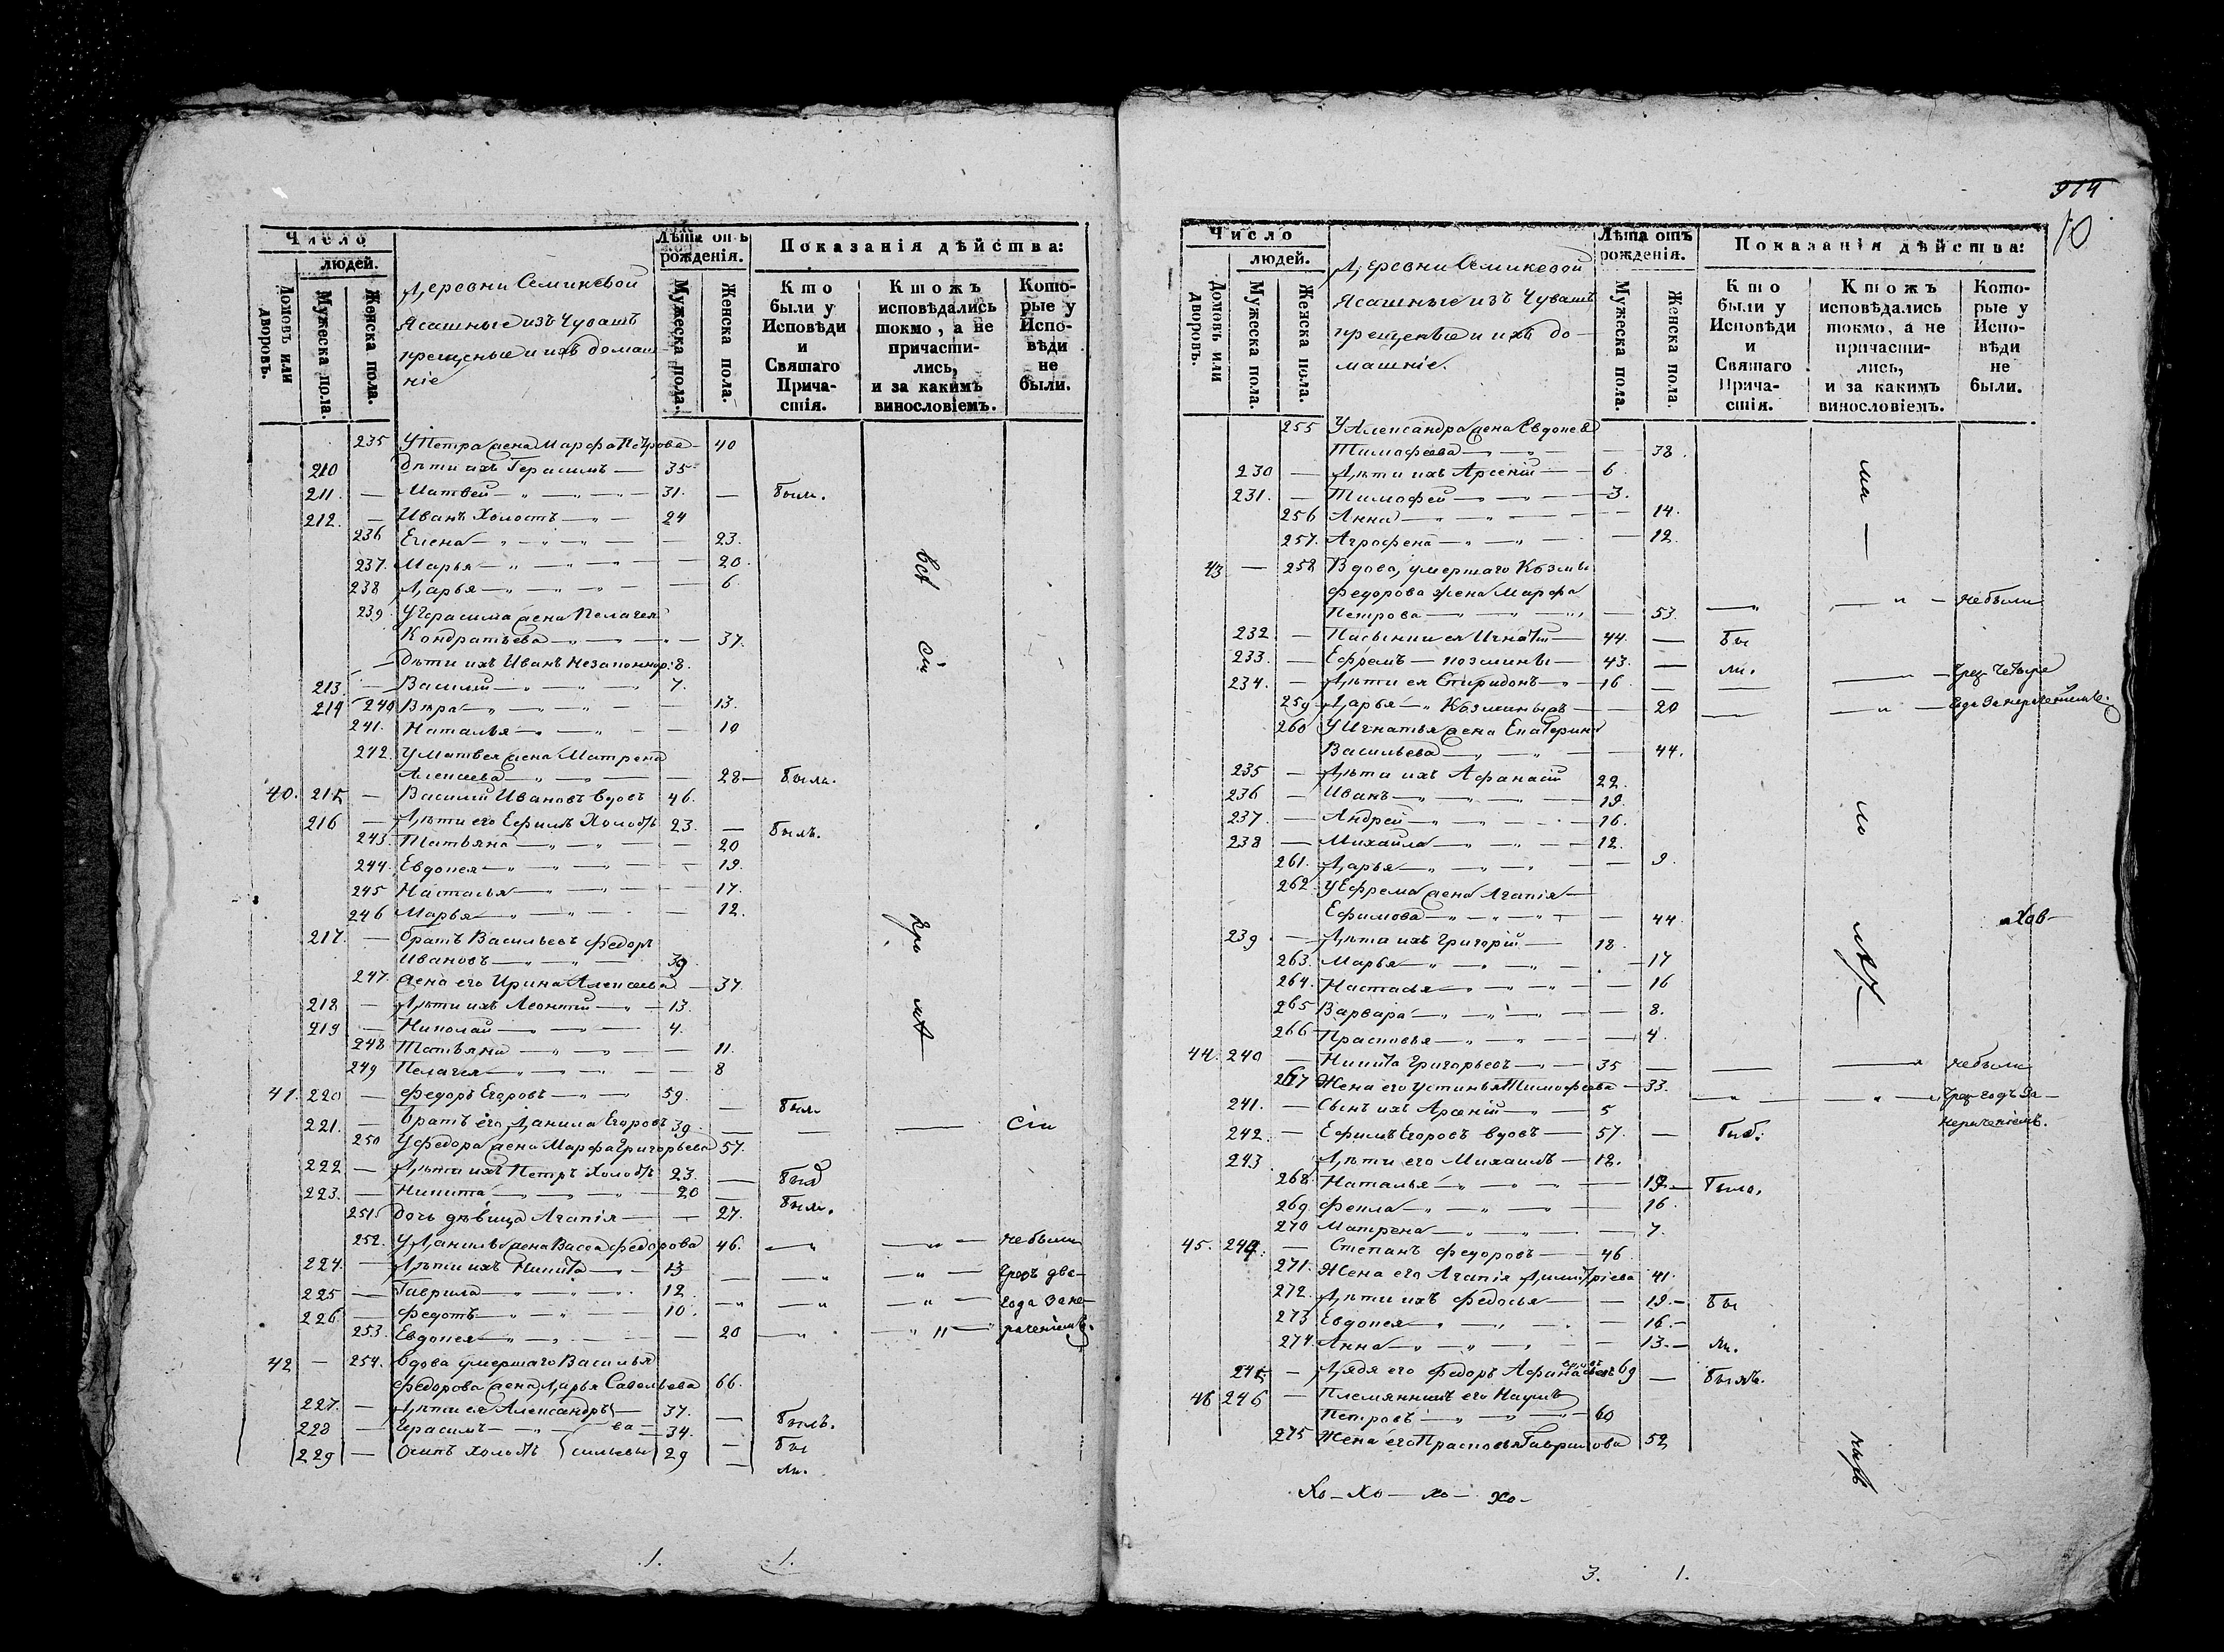 Число
людей.
Домовъ или дворовъ.
Мужеска пола.
Женска пола.
Деревни Семикевой
Ясашные изъ Чувашъ
крещеные и ихъ домаш-
ніе
Лѣта отъ рожденія.
Мужеска пола.
Женска пола.
Показанія дѣйства:
Кто были у Исповѣди и Святаго Прича-стія.
Ктожъ исповѣдались токмо, а не причасти-лись, и за какимъ винословіемъ.
Кото-рые у Испо-вѣди не были.
235 У Петра жена Марфа Петрова 40
210 Дѣти ихъ Герасимъ — 35
211. — Матвей — 31. — были.
212. — Иванъ Холостъ — 24
236 Елена — 23.
237. Марья — 20.
238 Дарья — 6.
239. У Герасима жена Пелагея
Кондратьева — 37.
— Дѣти ихъ Иванъ 8.
213. — Василій — 7.
214 240 Вѣра — 13.
241. Наталья — 10
242. У Матвея жена Матрена
Алексеева — 28 — былъ.
40. 215 — Василій Ивановъ вдовъ 46.
216 — Дѣти его Ефимъ Холостъ 23. — былъ.
243. Татьяна — 20
244. Евдокея — 19.
245 Настасья — 17.
246 Марья — 12.
217. — братъ Васильевъ Федоръ
Ивановъ — 39
247. жена его Ирина Алексеева — 37.
218 — Дѣти ихъ Леонтій — 13.
219 — Николай — 4.
248 Татьяна — 11.
249 Пелагея — 8
41. 220 — Федоръ Егоровъ — 59. — были
221. — Братъ его Данила Егоровъ 39.
250 У Федора жена Марфа Григорьева 57.
222 — Дѣти ихъ Петръ Холостъ 23.
223. — Никита — 20 — были.
251. дочь дѣвица Агапія — 27.
252. У Данилы жена Васса Федорова 46. — небыли
224. — Дѣти ихъ Никита — 13 — чрезъ два
225 — Гаврила — 12 — года зане-
226. — Федотъ — 10.
253. Евдокея — 20 — раченіемъ.
42 — 254. Вдова умершаго Василья
Федорова жена Дарья Савельева 66.
227. — Дѣти ея Александръ — 37. — былъ.
228 — Герасимъ — ва — 34. — бы
229 — Осипъ холостъ сильевы 29 — ли.
всѣ
сіи
гро
мѣ
сіи
1. 1.
914
10
Число
людей.
Домовъ или дворовъ.
Мужеска пола.
Женска пола.
Деревни Семикевой
Ясашные изъ Чувашъ
крещеные и ихъ до-
машніе.
Лѣта отъ рожденія.
Мужеска пола.
Женска пола.
Показанія дѣйства:
Кто были у Исповѣди и Святаго Прича-стія.
Ктожъ исповѣдались токмо, а не причасти-лись, и за какимъ винословіемъ.
Кото-рые у Испо-вѣди не были.
255 У Александра жена Евдокея
Тимофеева — 38.
230 — Дѣти ихъ Арсеній — 6.
231. — Тимофей — 3.
256 Анна — 14.
257. Агрофена — 12.
43 — 258 Вдова, умершаго Козмы
Федорова жена Марфа
Петрова — 53. — небыли
232. — Пасынки ея Игнатій — 44. — бы
233. — Ефремъ — козмины — 43. — ли.
234. — Дѣти ея Спиридонъ — 16 — чрез четыре
259 Дарья — Козминыхъ — 20 — года
260 У Игнатья жена Екатерина
Васильева — 44.
235 — Дѣти ихъ Афанасій 22.
236 — Иванъ — 19.
237. — Андрей — 16.
238 — Михайла — 12.
261. Дарья — 9.
262. У Ефрема жена Агапія —
Ефимова — 44.
239 — Дѣти ихъ Григорій — 18.
263. Марья — 17
264. Настасья — 16
265 Варвара — 8.
266 Прасковья — 4.
44. 240 — Никита Григорьевъ — 35 — небыли
267 Жена его Устинья Тимофеева — 33. — чрез годъ за-
241. — Сынъ ихъ Арсеній — 5 нераченіемъ.
242. — Ефимъ Егоровъ вдовъ — 57.
243 Дѣти его Михаилъ — 12.
268. Наталья — 19 — была.
269 Фекла — 16.
270 Матрена — 7.
45. 244. — Степанъ Федоровъ — 46.
271. Жена его Агапія Димитріева 41.
272. Дѣти ихъ Федосья — 19. — бы
273 Евдокея — 16. —
274. Анна — 13. — ли.
245 — Дядя его Федоръ Афанасьевъ вдовъ 69 — былъ.
46 246 — Племянникъ его Наумъ
Петровъ — 60
275 Жена его Прасковья Гаврилова 52
ма
ло
лѣт
ныхъ
Хо — Хо — хо — хо —
3. 1.